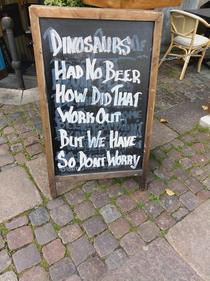 DINOSAURS
HAD NO BEER
HOW DID THAT
WORK OUT
BUT WE HAVE
SO DONT WORRY